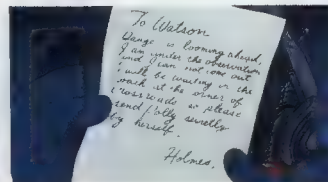 To Watson
Dange is looming ahead,
I am under the observation
and I can not come out
I will be waiting in the
coach at the corner of
crossroads so please
send Polly secretly
by herself.
Holmes.